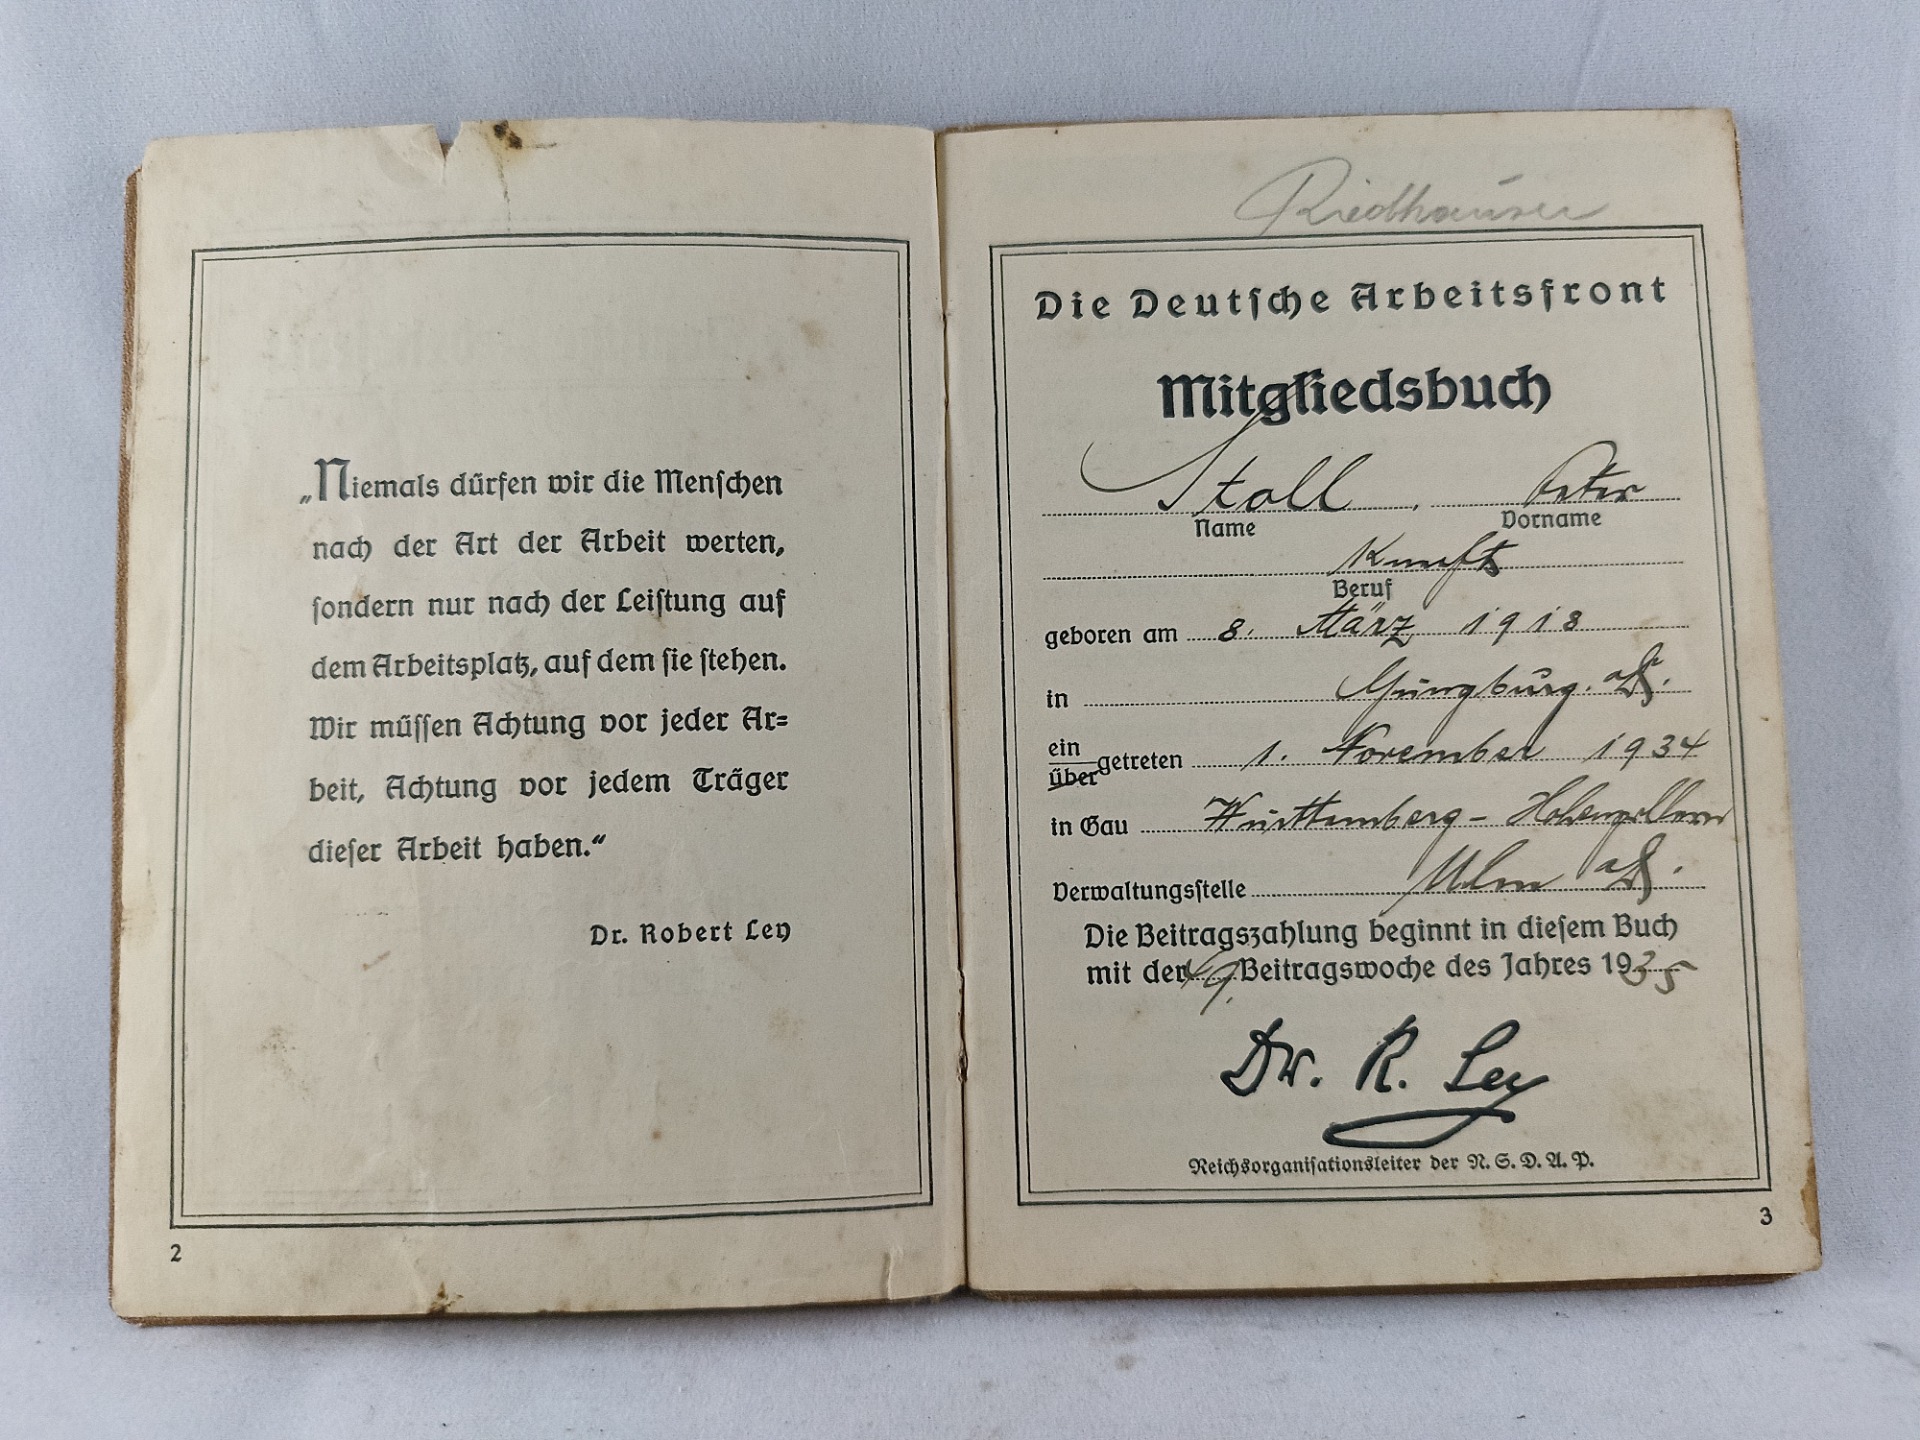 „Niemals dürfen wir die Menschen
nach der Art der Arbeit werten,
sondern nur nach der Leistung auf
dem Arbeitsplatz, auf dem sie stehen.
Wir müssen Achtung vor jeder Ar=
beit, Achtung vor jedem Träger
dieser Arbeit haben.“
Dr. Robert Ley
2
Riedhauser
Die Deutsche Arbeitsfront
Mitgliedsbuch
Stoll, Peter
Name Vorname
Beruf
geboren am 8. März 1918
in Günzburg a/D.
ein
über getreten 1. November 1934
in Gau Württemberg - Hohenzollern
Verwaltungsstelle Ulm a/D.
Die Beitragszahlung beginnt in diesem Buch
mit der 49. Beitragswoche des Jahres 1935
Dr. R. Ley
Reichsorganisationsleiter der N. S. D. A. P.
3